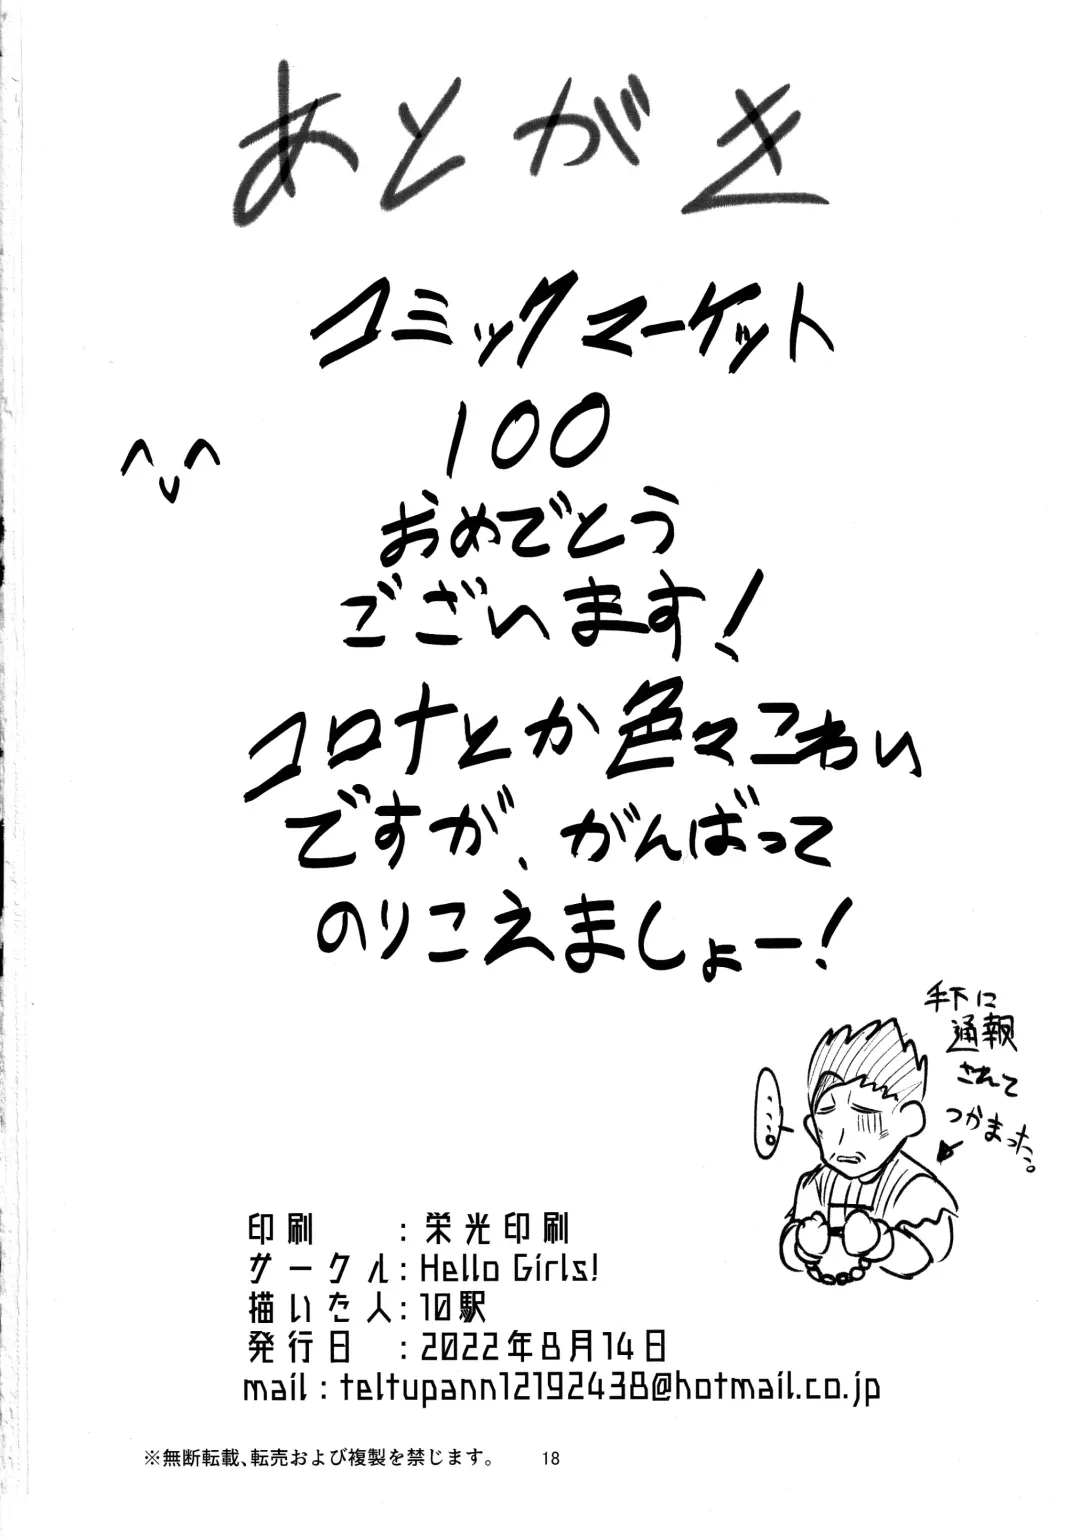 あとがき
コミックマーケット
100
おめでとう
ございます!
コロナとか色々こわい
ですが、がんばって
のりこえましょー!
手下に
通報
されて
つかまった。
····。
印刷 : 栄光印刷
サークル : Hello Girls!
描いた人 : 10駅
発行日 : 2022年8月14日
mail : teltupann12192438@hotmail.co.jp
※無断転載、転売および複製を禁じます。
18